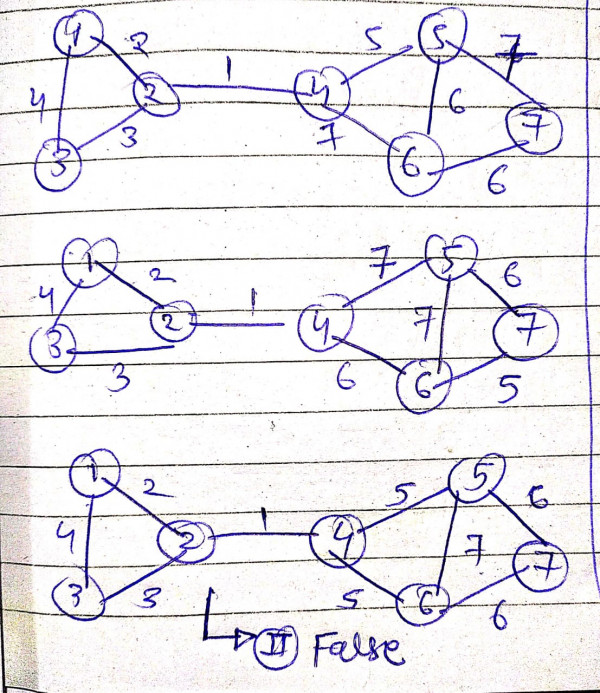 4 2 5 5 7
4 2 1 4 6 7
3 3 7 6 6
1 2 7 5 6
4 2 1 4 7 7
3 3 6 6 5
1 2 5 5 6
4 2 1 4 7 7
3 3 5 6 6
II False